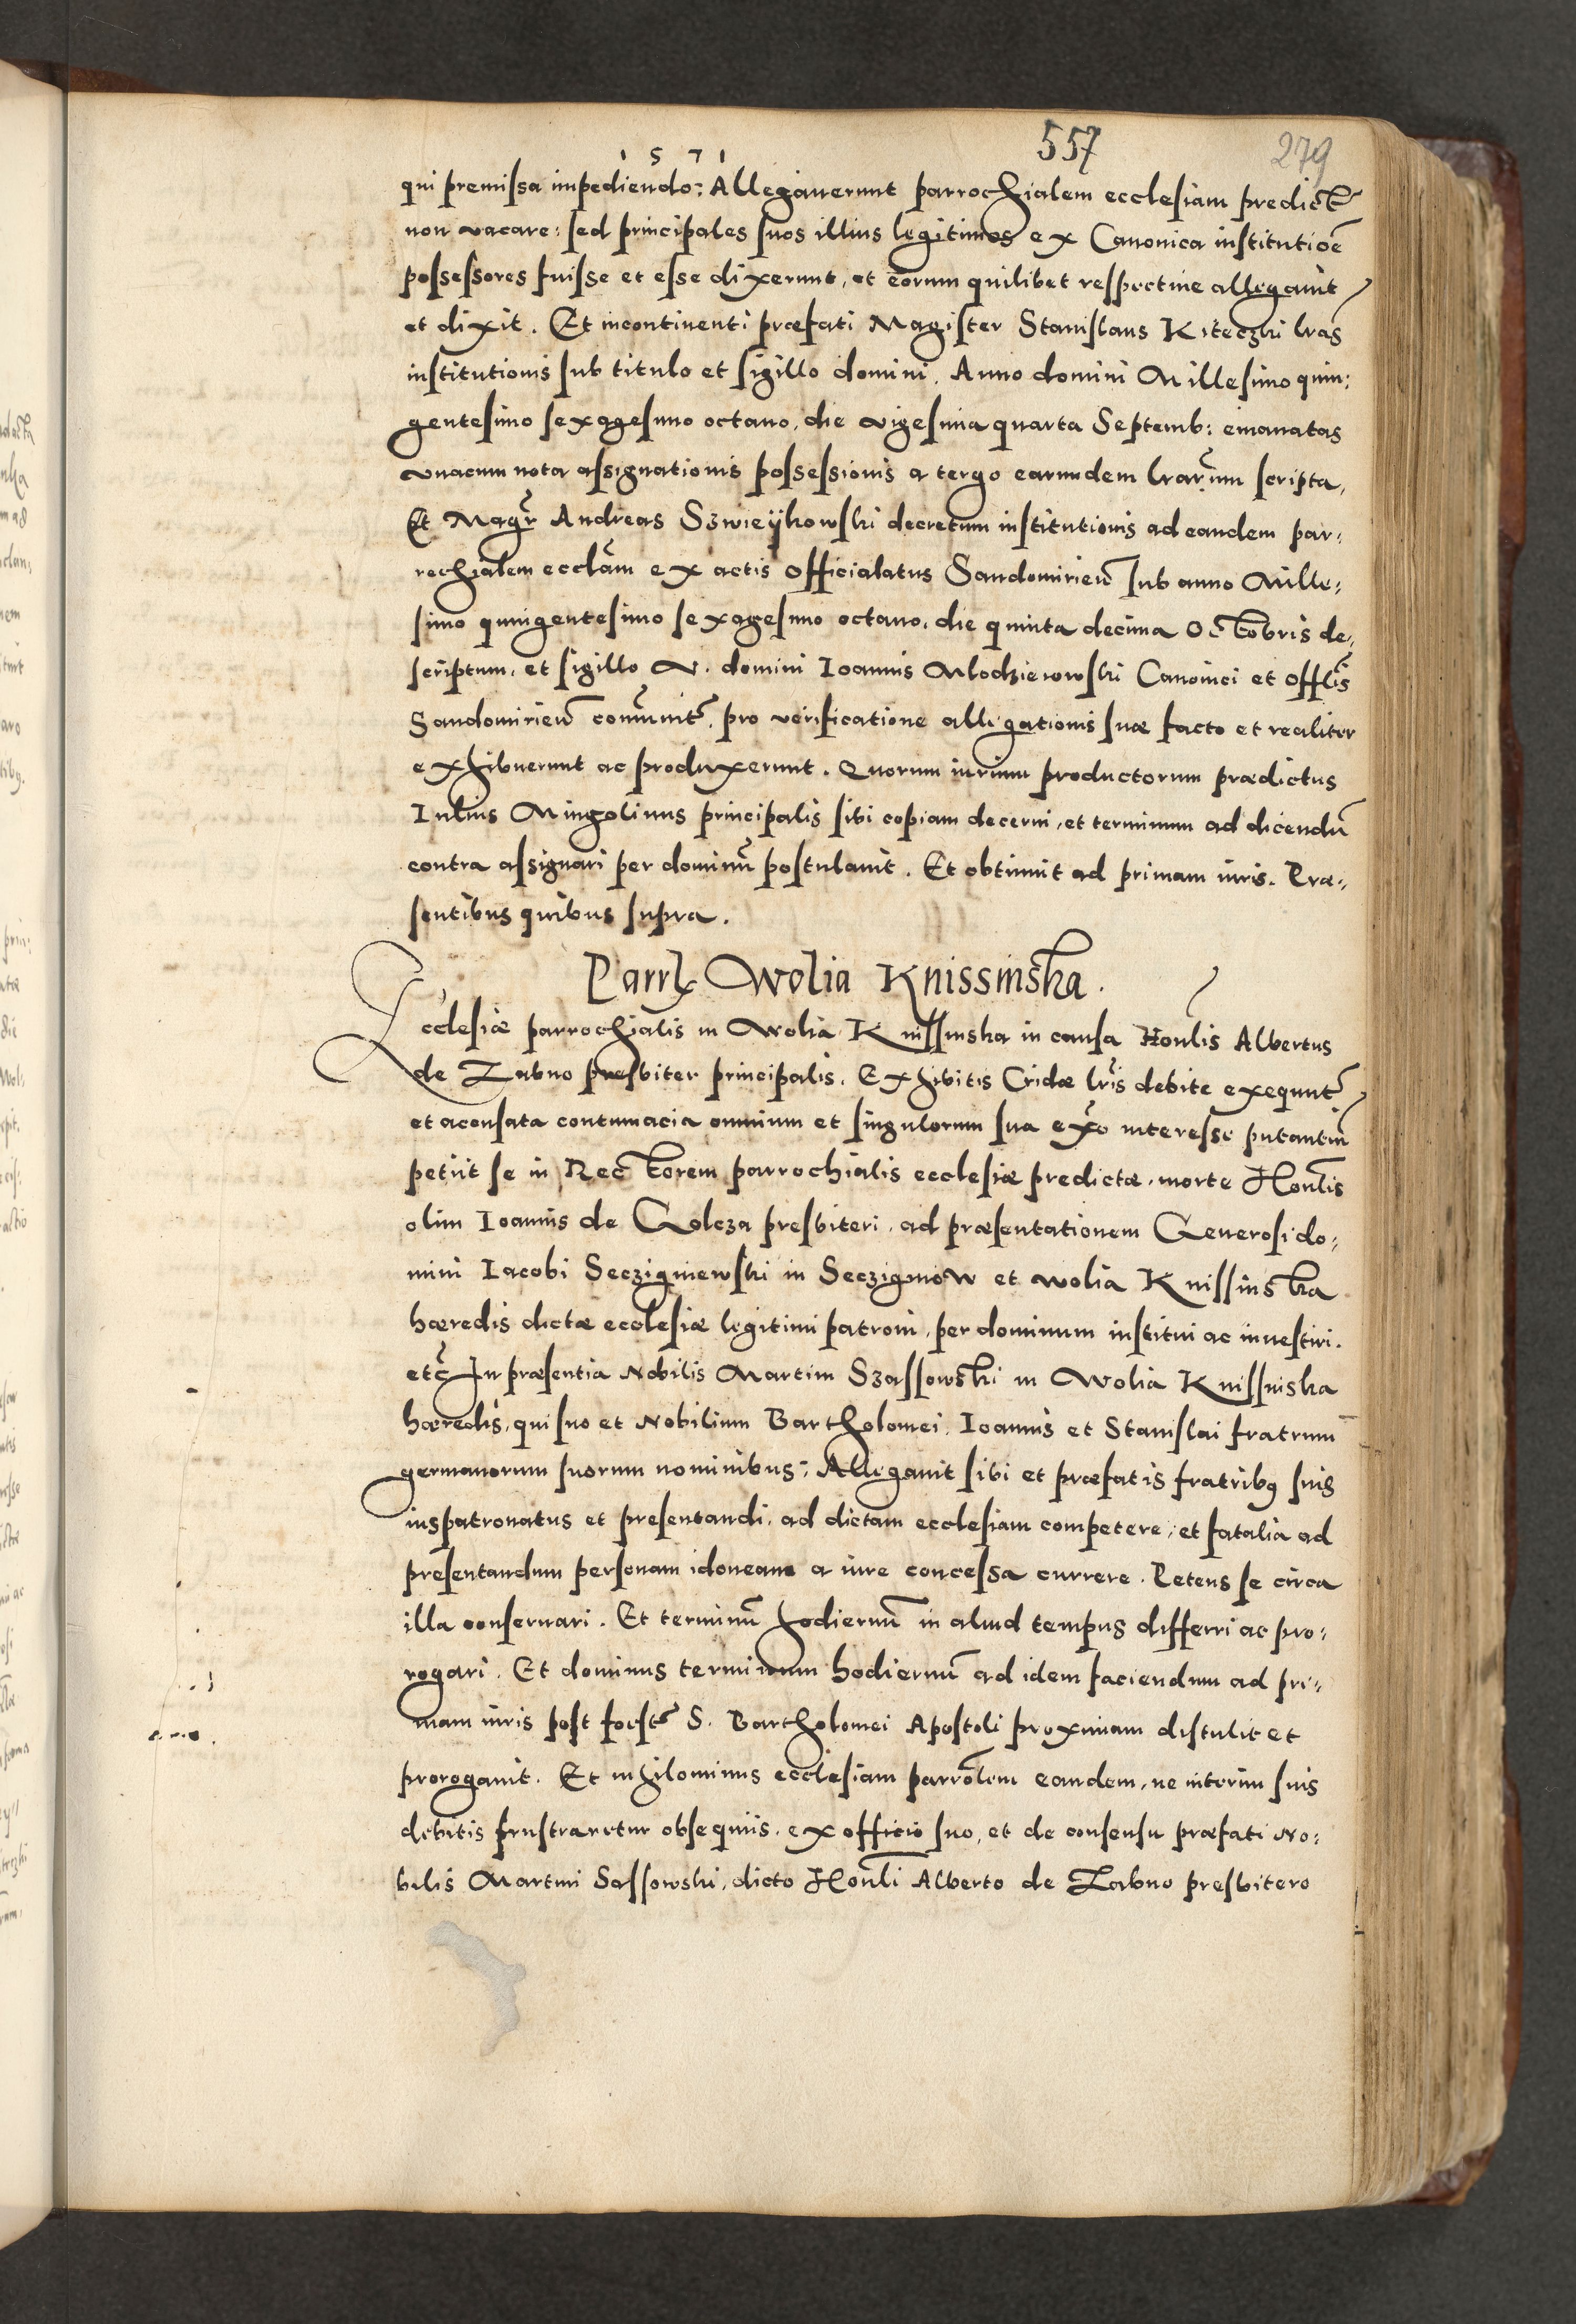 1571
557
279
qui premissa impediendo: Allegauerunt parrochialem ecclesiam predict
non vacare: sed principales suos illius legitimos ex Canonica institutiōe
possessores fuisse et esse dixerunt, et eorum quilibet respectiue allegauit
et dixit. Et incontinenti præfati Magister Stanislaus Kiteczki lras
institutionis sub titulo et sigillo domini. Anno domini Millesimo quin:
gentesimo sexagesimo octauo, die vigesima quarta Septemb: emanatas
vnacum nota assignationis possessionis a tergo earumdem lrarum scripta,
Et Magr Andreas Szwieykowski decretum institutionis ad eandem par:
rochialem ecclām ex actis officialatus Sandomirien̄ sub anno Mille:
simo quingentesimo sexagesimo octauo, die quinta decima Octobris de:
scriptum, et sigillo V. domini Ioannis Mlodziewowski Canonici et offlis
Sandomirien̄ com̄unit, pro verificatione allegationis suæ facto et realiter
exhibuerunt ac produxerunt. Quorum iurium productorum prædictus
Iulius Mingolinus principalis sibi copiam decerni, et terminum ad dicendū
contra assignari per dominū postulauit. Et obtinuit ad primam iuris. Præ:
sentibus quibus supra.
Parrl Wolia Knissinska.
Ecclesiæ parrochialis in Wolia Knissinska in causa Honlis Albertus
de Zabno presbiter principalis. Exhibitis Cridæ lris debite exequut
et acousata contumacia omnium et singulorum sua exo interesse putantiū
petijt se in Rectorem parrochialis ecclesiæ predictæ, morte Honlis
olim Ioannis de Goleza presbiteri, ad præsentationem Generosi do:
mini Iacobi Seczigniewski in Seczigniow et wolia Knissinska
hæredis dictæ ecclesiæ legitimi patroni, per dominum institui ac inuestiri.
etc̄ In præsentia Nobilis Martini Szassowski in Wolia Knissinska
hæredis, qui suo et Nobilium Bartholomei, Ioannis et Stanislai fratrum
germanorum suorum nominibus; Allegauit sibi et præfatis fratribꝯ suis
iuspatronatus et presentandi, ad dictam ecclesiam competere, et fatalia ad
presentandum personam idoneam a iure concessa currere. Petens se circa
illa conseruari. Et terminū hodiernū in aliud tempus differri ac pro:
rogari. Et dominus terminum hodiernū ad idem faciendum ad pri:
mam iuris post foest S. Bartholomei Apostoli proximam distulit et
prorogauit. Et nihilominus ecclesiam parrōlem eandem, ne interim suis
debitis frustraretur obsequiis, ex officio suo, et de consensu præfati No:
bilis Martini Sassowski, dicto Honli Alberto de Zabno presbitero